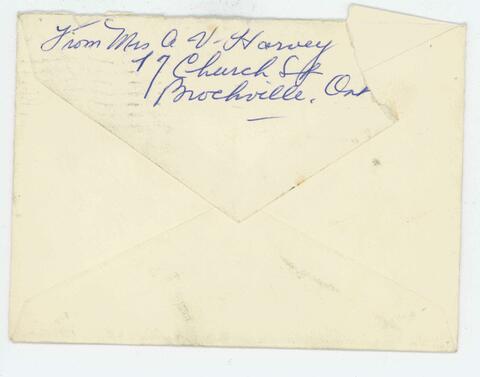 From Mrs A V. Harvey
17 Church St
Brockville. Ont